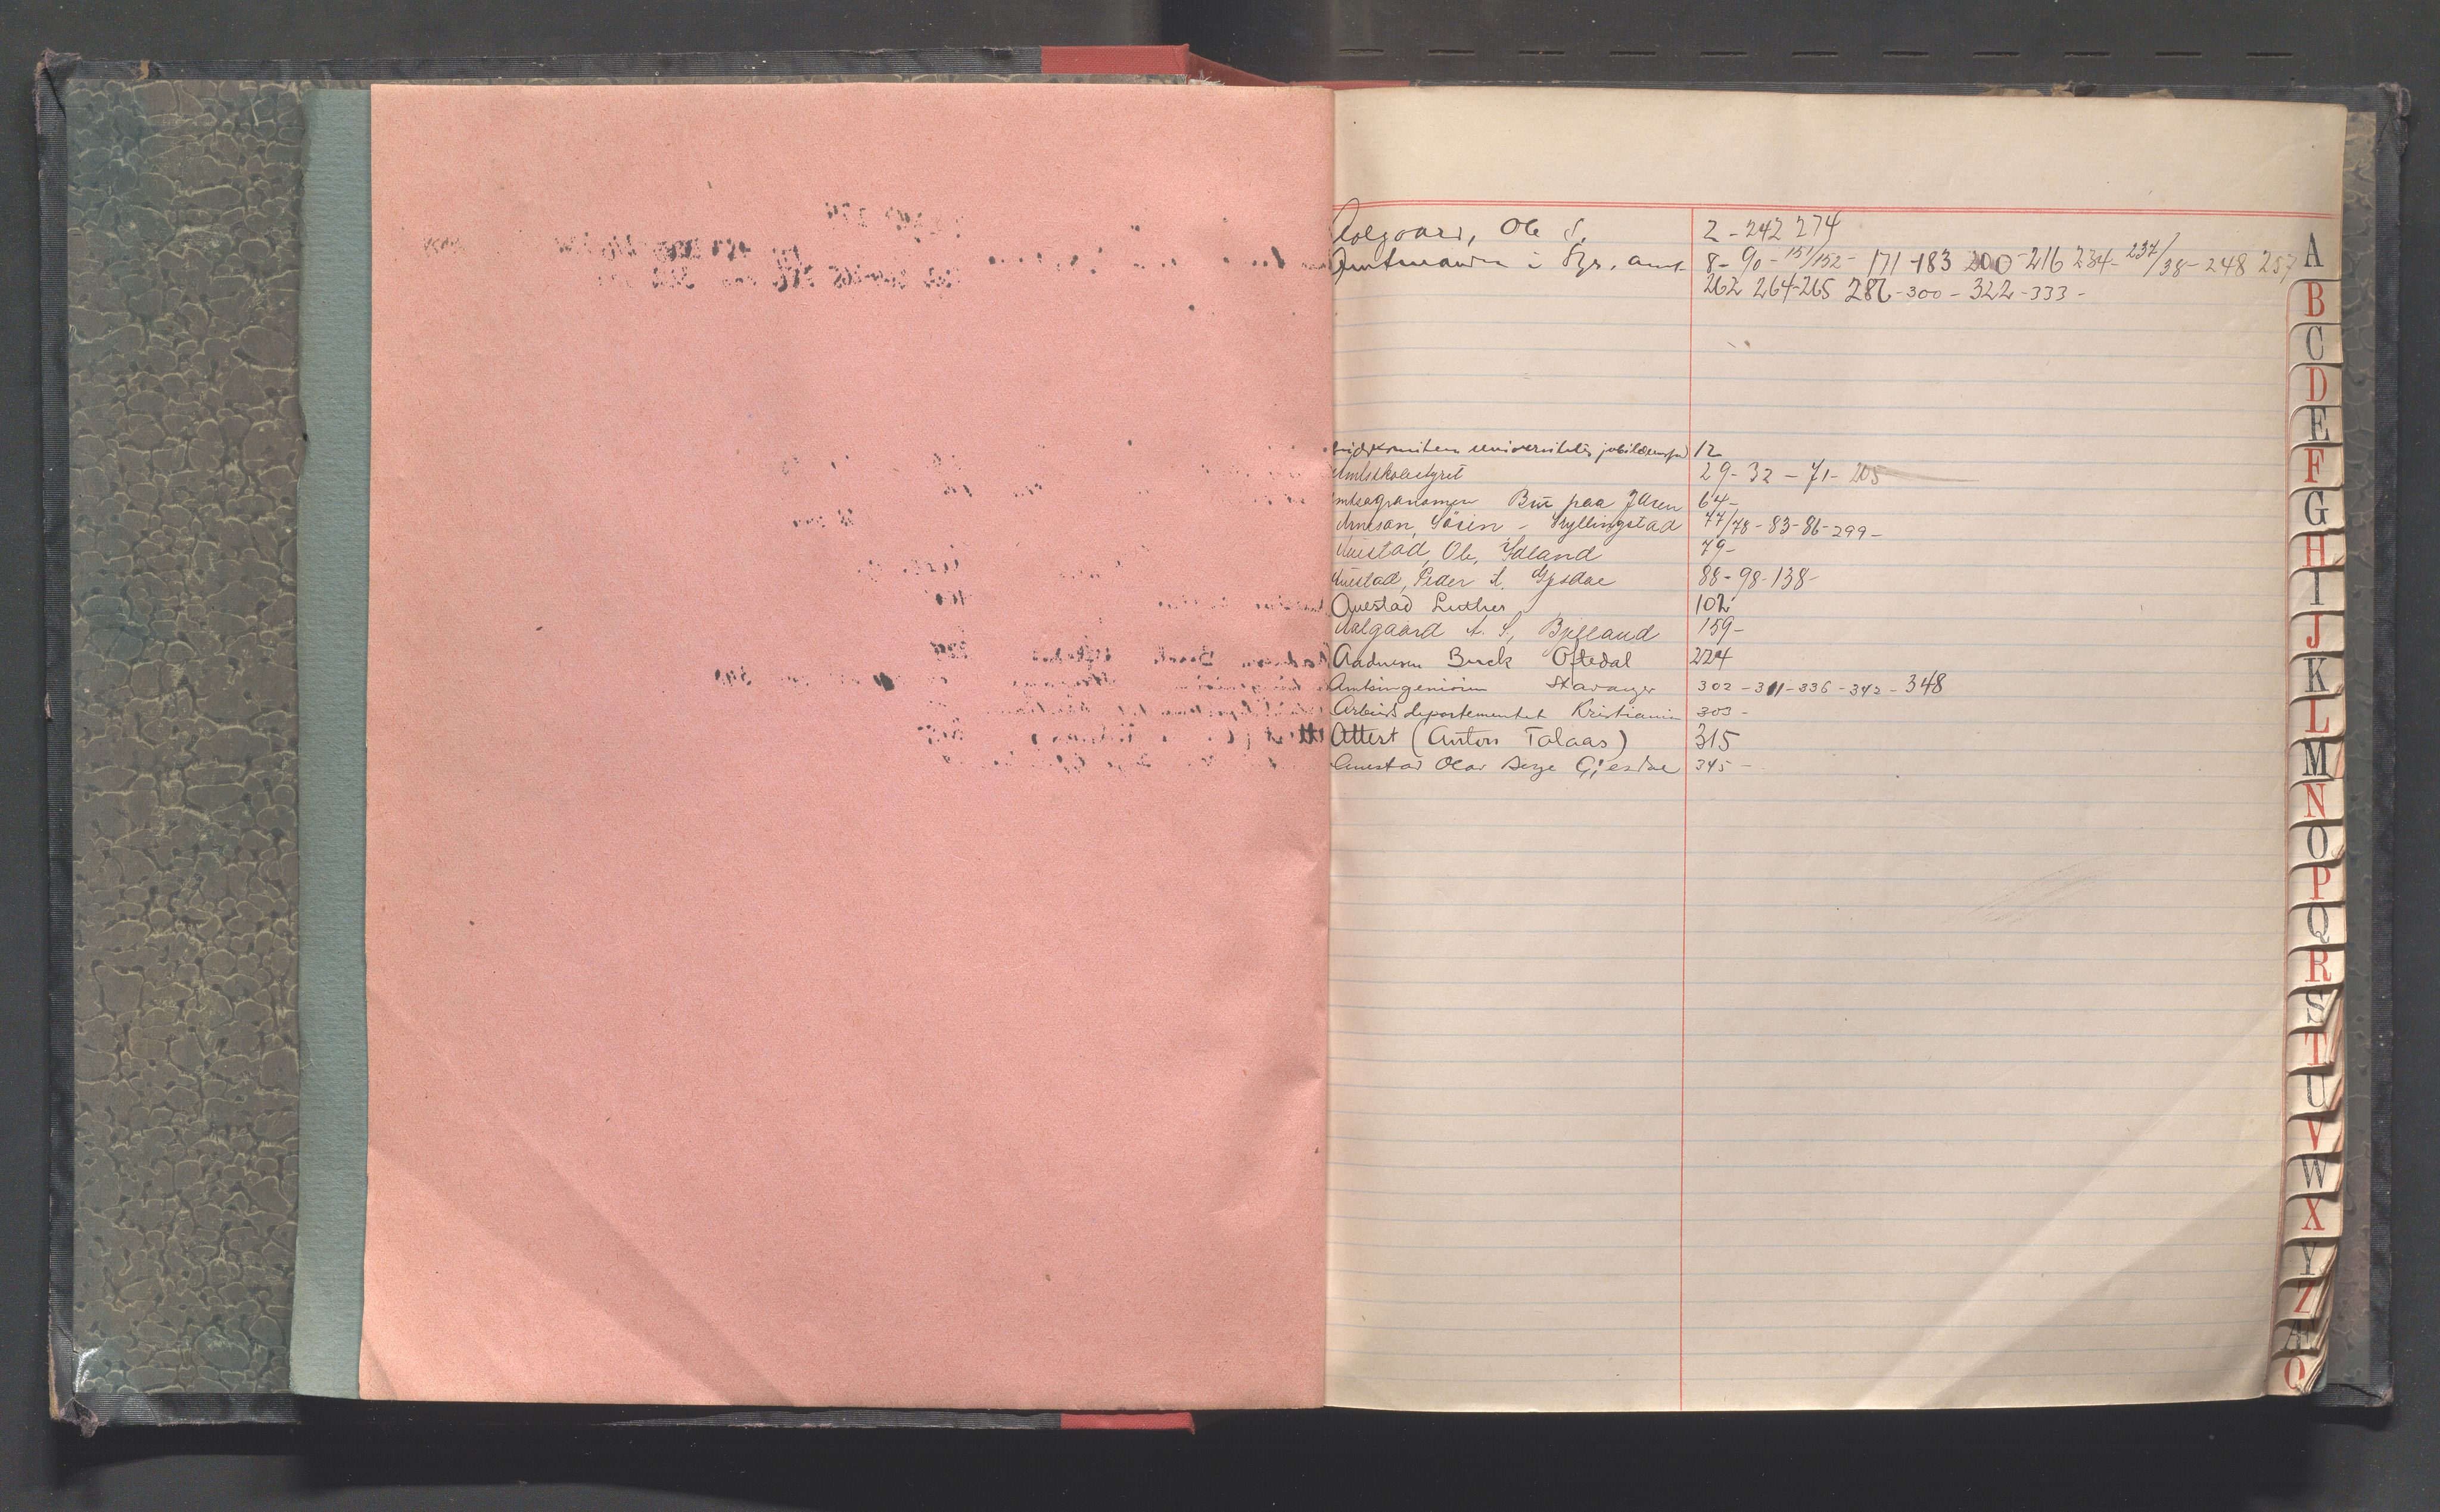 Aalgaard, Ole S. 2 - 242 274
Amtmannen i Stgr. amt 8 - 90 - 151/152 - 171 - 183 200 - 216 234 - 237/38 - 248 257
262 264-265 286 - 300 - 322 - 333 -
universitets jubilæums 12
Amtsskolestyret 29 - 32 - 71 - 205
Amtsagronomen Bru paa Jæren 64 -
Arneson, Sören - Skyllingstad 77/78 - 83 - 86 - 299 -
Auestad, Ole, Ydland 79 -
Auestad, Peder A. Gjesdal 88 - 98 - 138 -
Auestad Luther 102
Aalgaard A. S., Bjelland 159 -
Aadnesen Berek Oftedal 224
Amtsingeniören Stavanger 302 - 311 - 336 - 342 - 348
Arbeidsdepartementet Kristiania 303 -
Attest (Anton Tolaas) 315
Auestad Olav Gjesdal 345 -
A
B
C
D
E
F
G
H
I
J
K
L
M
N
O
P
Q
R
S
T
U
V
W
X
Y
Z